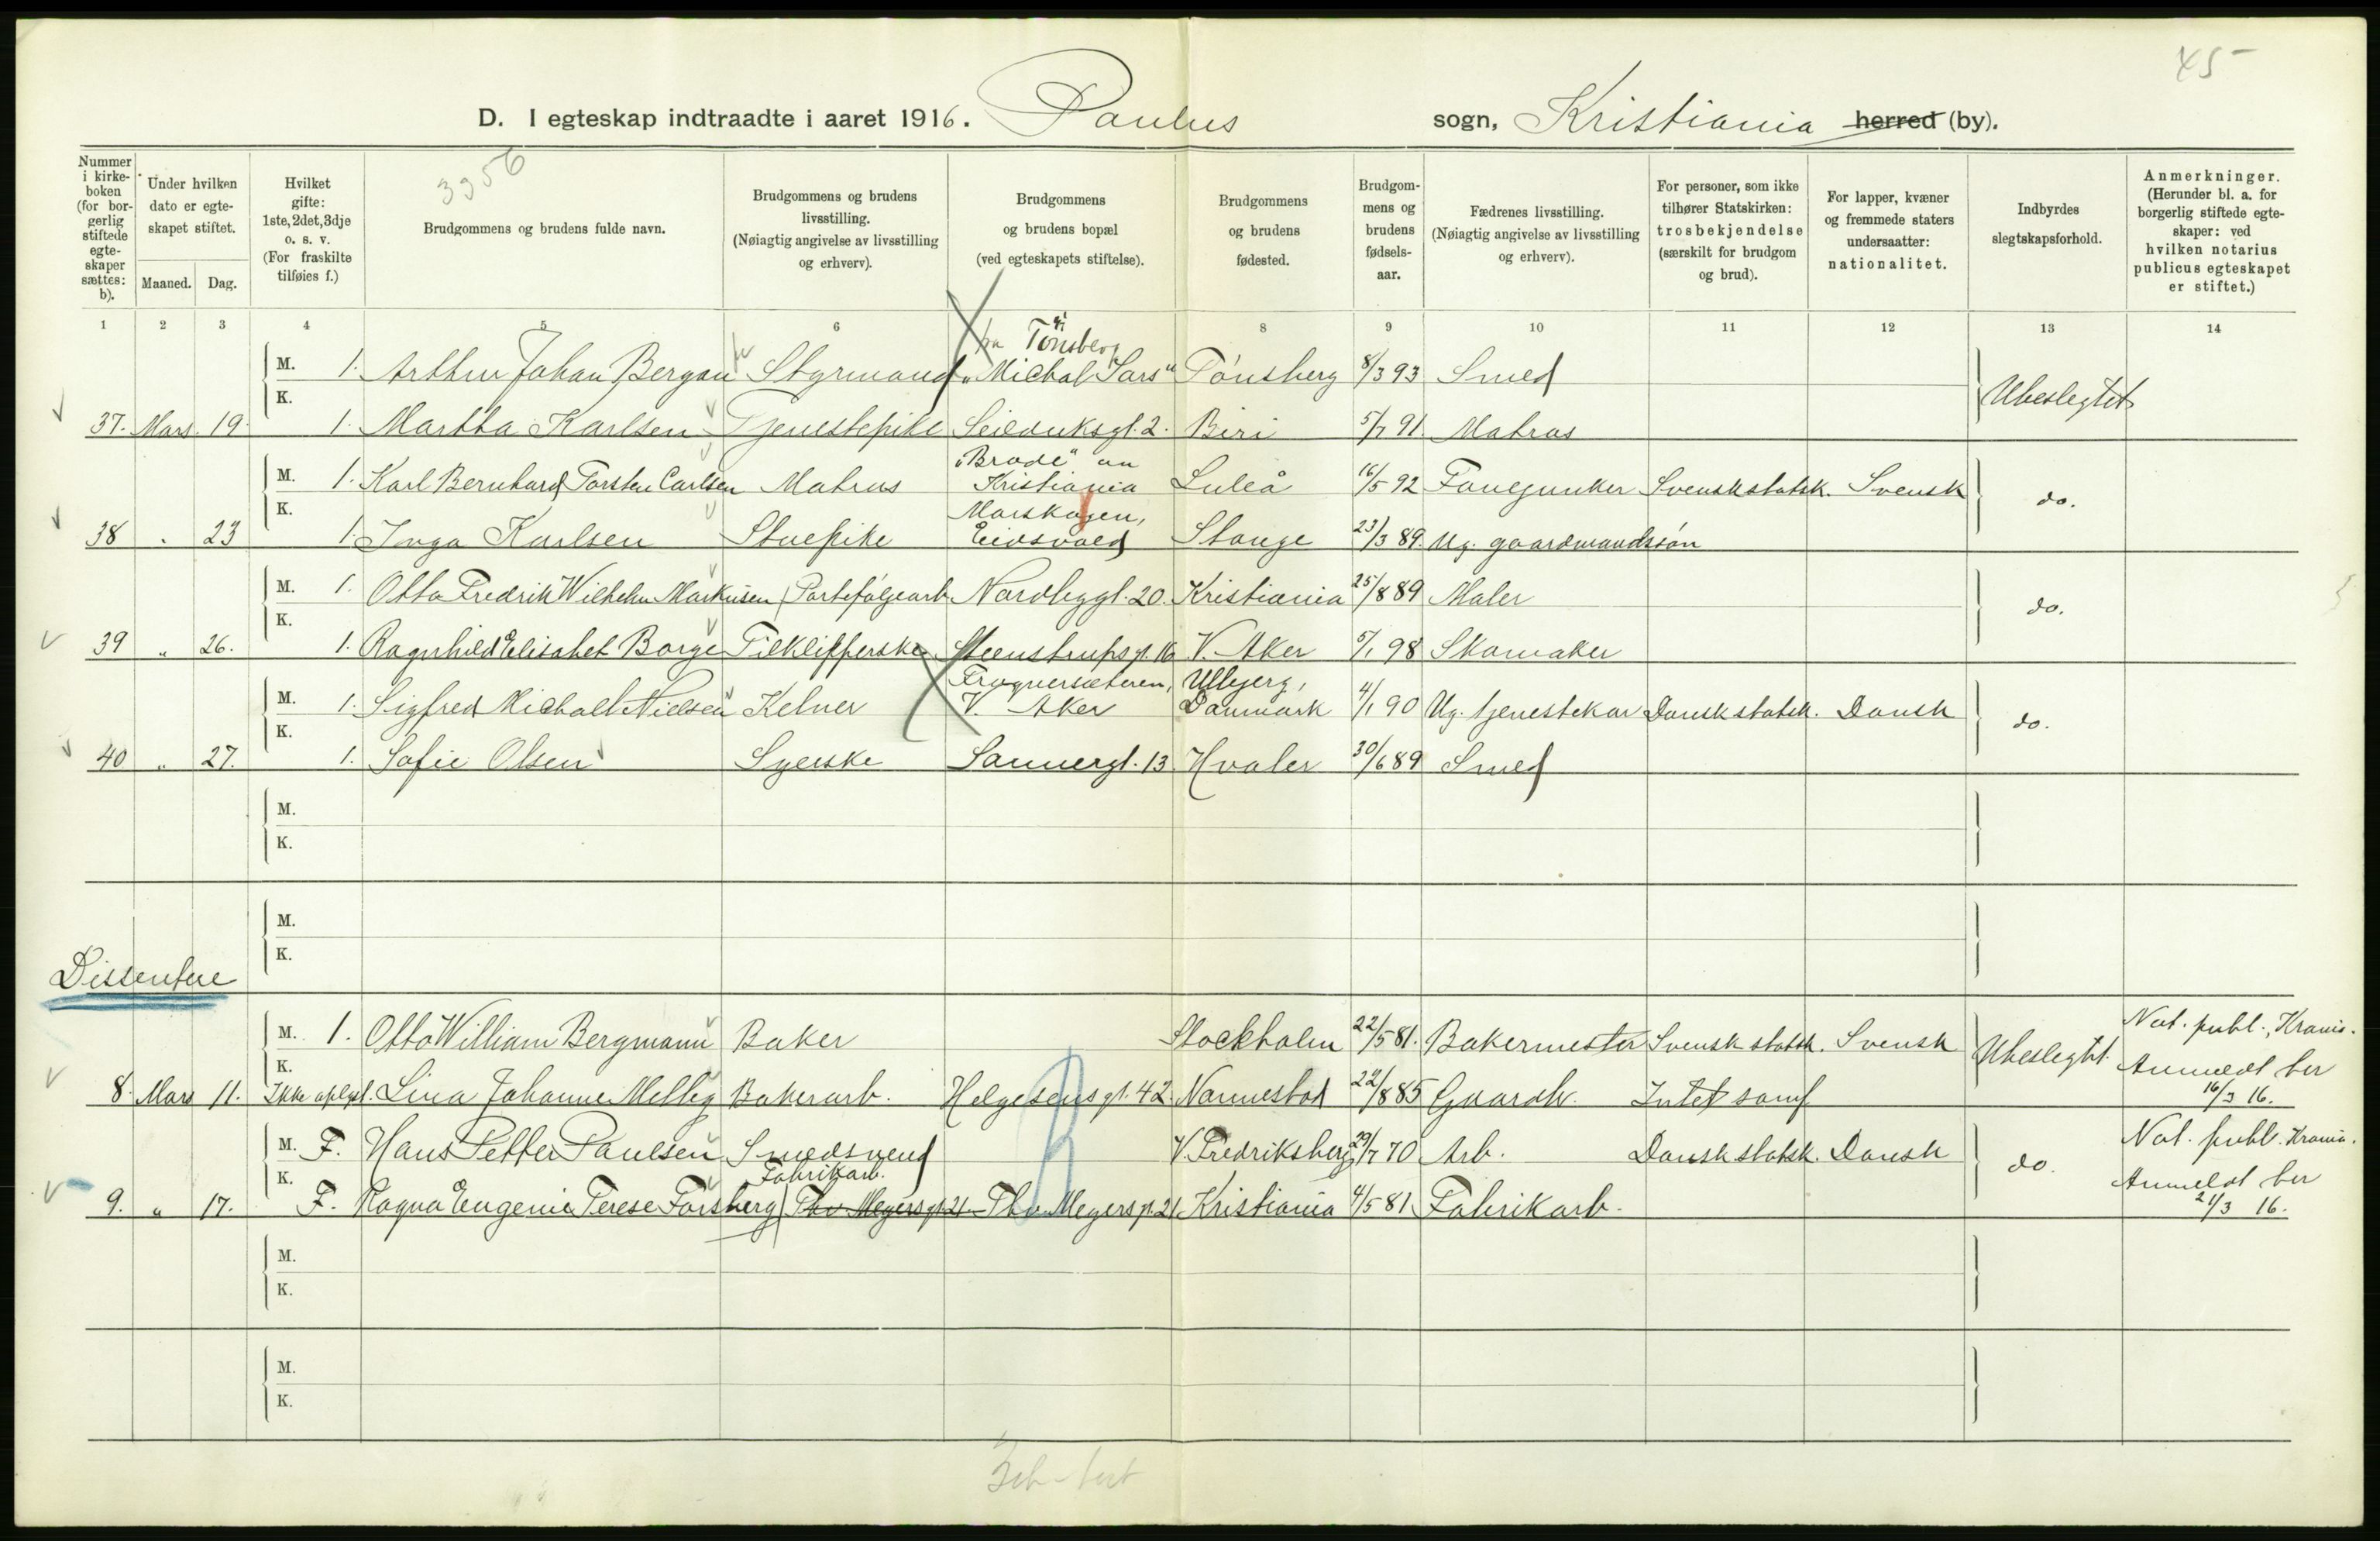 45
D. I egteskap indtraadte i aaret 1916. Paulus sogn, Kristiania herred (by).
3956
Nummer i kirkeboken (for borgerlig stiftede egteskaper sættes: b).
Under hvilken dato er egteskapet stiftet.
Maaned. Dag.
Hvilket gifte: 1ste, 2det, 3dje o. s. v. (For fraskilte tilføies f.)
Brudgommens og brudens fulde navn.
Brudgommens og brudens livsstilling. (Nøiagtig angivelse av livsstilling og erhverv).
Brudgommens og brudens bopæl (ved egteskapets stiftelse).
Brudgommens og brudens fødested.
Brudgommens og brudens fødselsaar.
Fædrenes livsstilling. (Nøiagtig angivelse av livsstilling og erhverv).
For personer, som ikke tilhører Statskirken: trosbekjendelse (særskilt for brudgom og brud).
For lapper, kvæner og fremmede staters undersaatter: nationalitet.
Indbyrdes slegtskapsforhold.
Anmerkninger. (Herunder bl. a. for borgerlig stiftede egteskaper: ved hvilken notarius publicus egteskapet er stiftet.)
1 2 3 4 5 6 8 9 10 11 12 13 14
fra Tönsberg
M. 1. Arthur Johan Bergan Styrmand "Michal Sars" Tönsberg 8/3 93 Smed Ubeslegtet
K.
37. Mars 19. 1. Martha Karlsen Tjenestepike Seilduksgt. 2. Biri 5/7 91. Matros
"Brode" av
M. 1. Karl Bernhard Torsten Carlsen Matros Kristiania Luleå 16/5 92 Fanejunker Svensk statsk. Svensk do.
K. Morskogen,
38 " 23 1. Inga Karlsen Stuepike Eidsvold Stange 23/3 89. Ug. gaardmandssön
M. 1. Otto Fredrik Wilhelm Markusen Porteföljearb. Nordbygt. 20. Kristiania 25/8 89 Maler do.
K.
39 " 26. 1. Ragnhild Elisabet Borge Tilklipperske Steenstrupsgt. 16 V. Aker 5/1 98 Skomaker
Frognersæteren, Ulbjerg,
M. 1. Sigfred Michael Nielsen Kelner V. Aker Danmark 4/1 90 Ug. tjenestekar Dansk statsk. Dansk do.
K.
40 " 27. 1. Sofie Olsen Syerske Sannergt. 13 Hvaler 30/6 89 Smed
M.
K.
M.
K.
Dissentere
M. 1. Otto William Bergmann Baker Stockholm 22/5 81. Bakermester Svensk statsk. Svensk Ubeslegtet. Not. publ., Krania.
K. Anmeldt her
8. Mars 11. Ikke oplyst. Lina Johanne Melbye Bakerarb. Helgesens gt. 42. Nannestad 22/8 85 Gaardbr. Intet samf 16/3 16.
M. F. Hans Petter Paulsen Smedsvend V. Fredriksberg 29/7 70 Arb. Dansk statsk. Dansk do. Not. publ. Krania.
K. Fabrikarb. Anmeldt her
9. " 17. F. Ragna Eugenie Terese Forsberg Thv. Meyersgt. 21. Thv. Meyersgt. 21 Kristiania 4/5 81 Fabrikarb. 21/3 16.
M.
K.
M.
K.